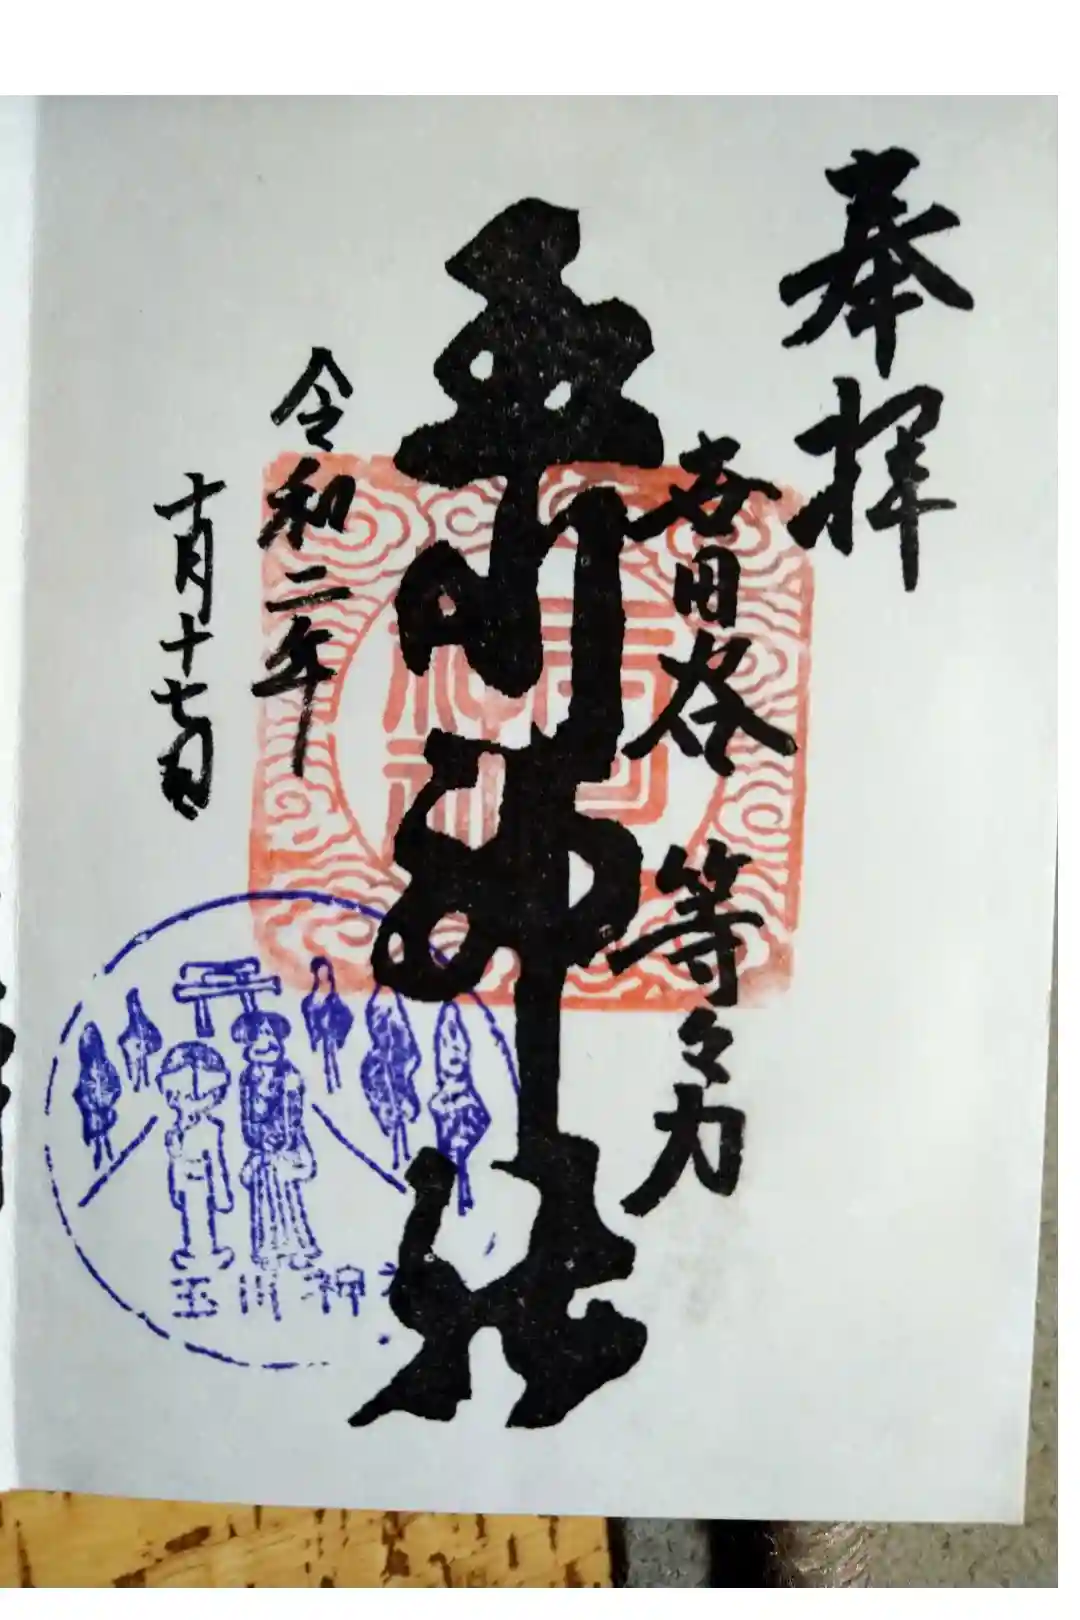 奉拝
世田谷 等々力
玉川神社
令和二年
十月十七日
玉川神